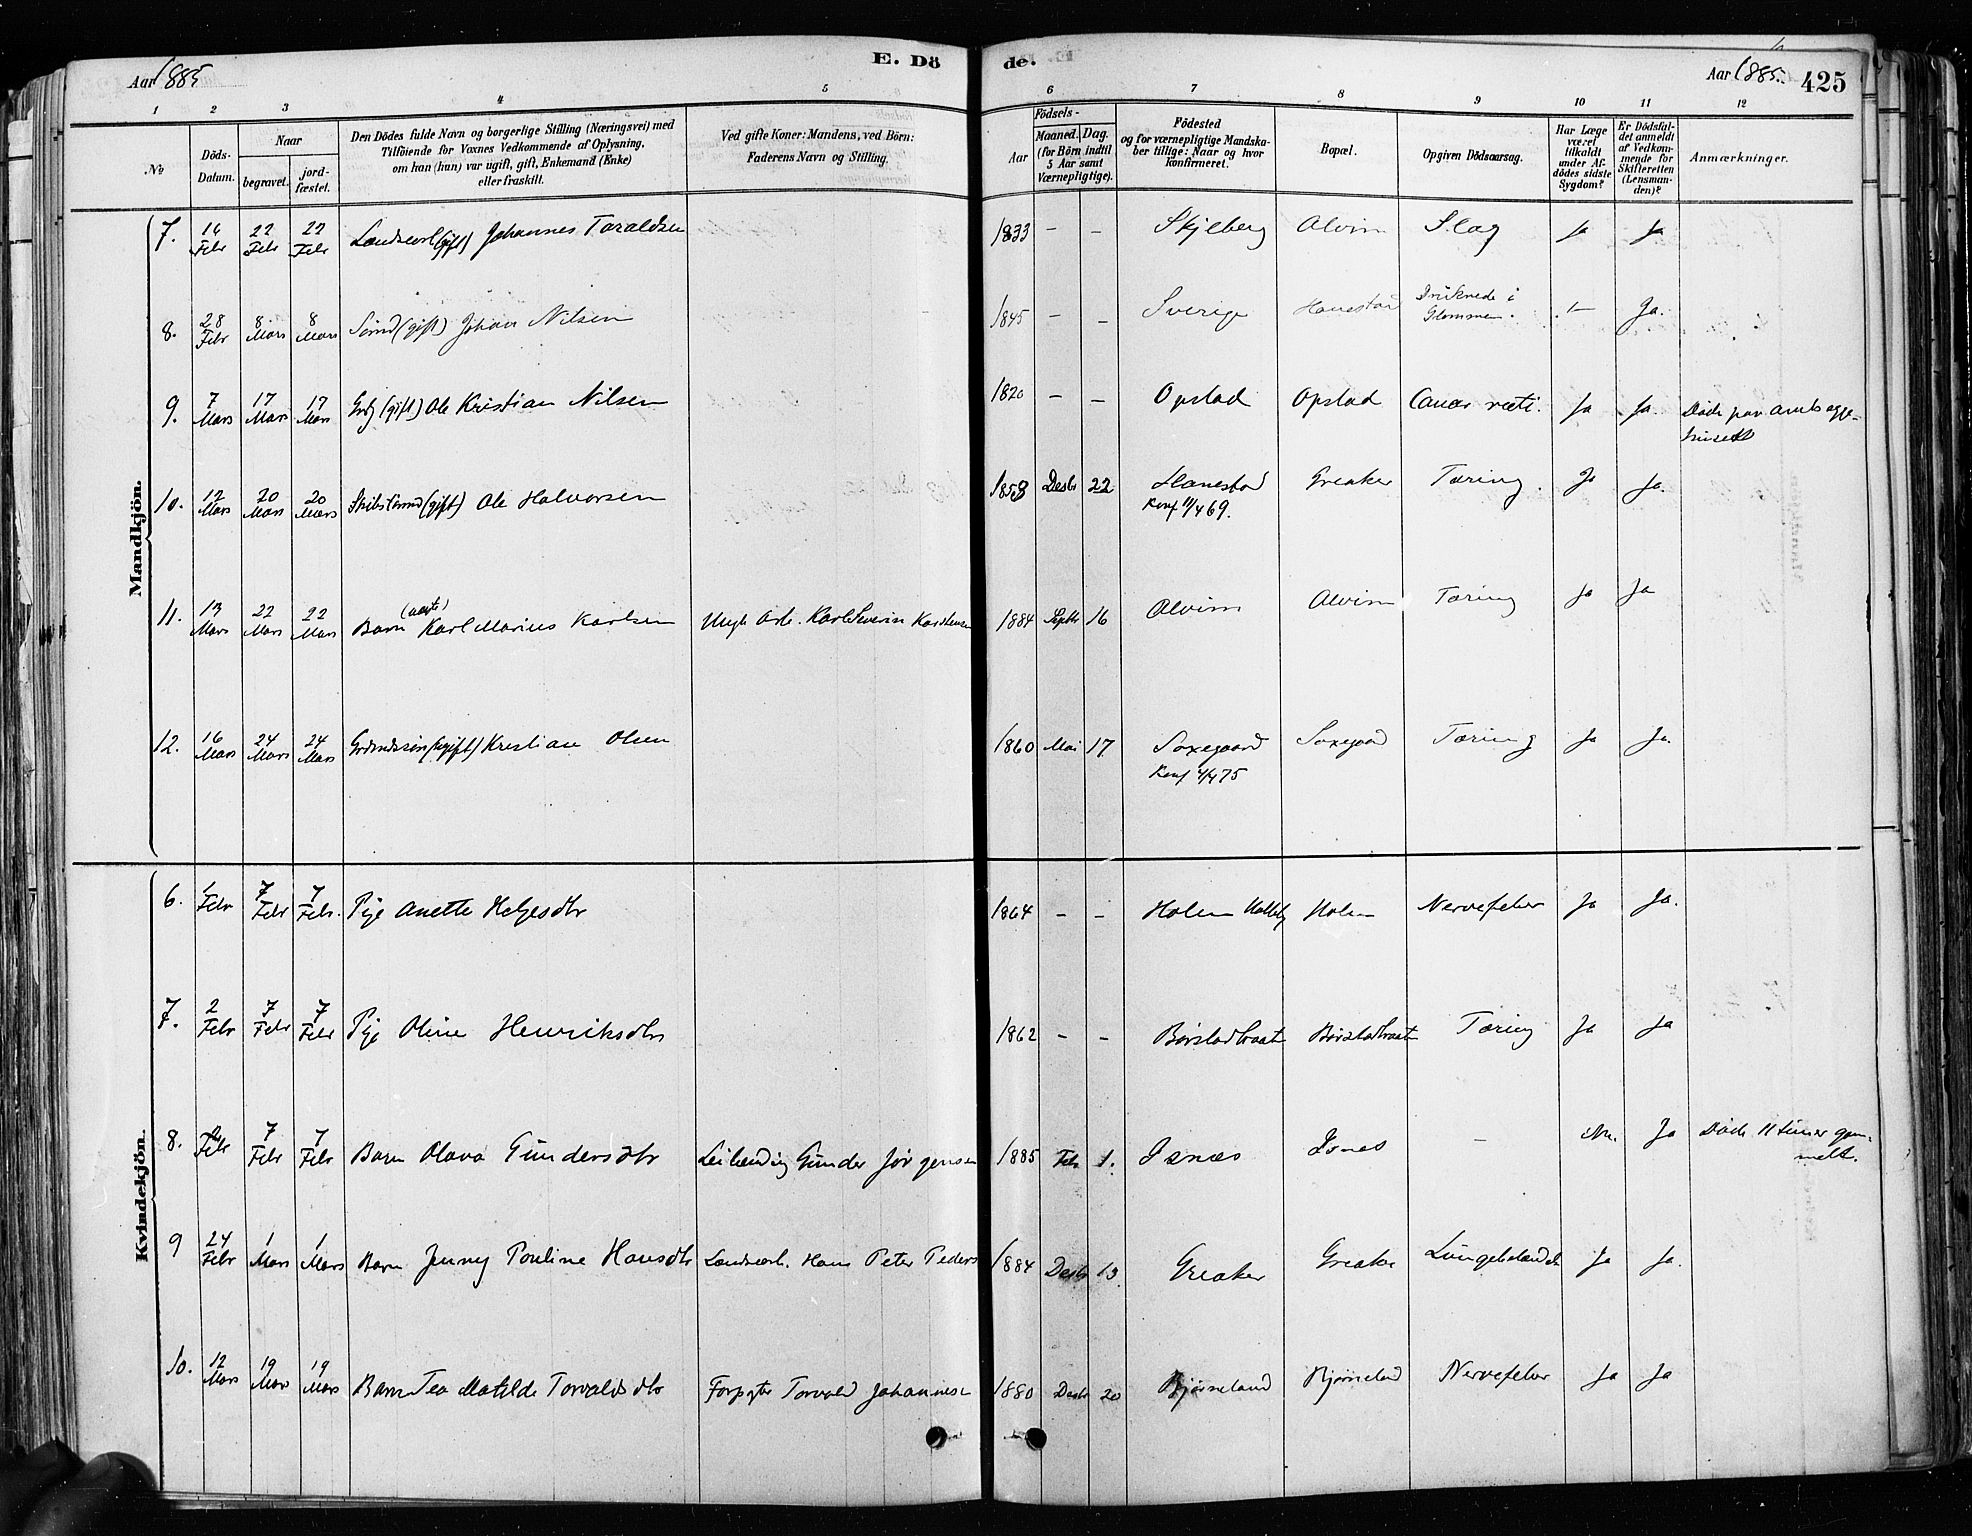 Aar 1885
E. Dö
de.
Aar 1885.
425
1 2 3 4 5 6 7 8 9 10 11 12
No
Döds-Datum.
Naar
begravet.
jord-fæstet.
Den Dödes fulde Navn og borgerlige Stilling (Næringsvei) med
Tilföiende for Voxnes Vedkommende af Oplysning,
om han (hun) var ugift, gift, Enkemand (Enke)
eller fraskilt.
Ved gifte Koner: Mandens, ved Börn:
Faderens Navn og Stilling.
Födsels-
Aar
Maaned. Dag.
(for Börn indtil
5 Aar samt
Værnepligtige).
Födested
og for værnepligtige Mandska-
ber tillige: Naar og hvor
konfirmeret.
Bopæl.
Opgiven Dödsaarsag.
Har Læge
været
tilkaldt
under Af-
dödes sidste
Sygdom?
Er Dödsfal-
det anmeldt
af Vedkom-
mende for
Skifteretten
(Lensman-
den)?
Anmærkninger.
Mandkjön.
7. 16 Febr 22 Febr 22 Febr (gift) Johannes Taraldsen 1833 - - Skjeberg Alvim Slag Ja Ja
8. 28 Febr 8 Mars 8 Mars (gift) Johan Nilsen 1845 - - Sverige Hanestad Druknede i Glommen. - Ja.
9. 7 Mars 17 Mars 17 Mars (gift) Ole Kristian Nilsen 1820 - - Opstad Opstad Ja Ja. Døde paa
10. 12 Mars 20 Mars 20 Mars (gift) Ole Halvorsen 1853 Desbr 22 Hanestad Greaker Tæring. Ja Ja.
Konf 11/4 69.
11. 13 Mars 22 Mars 22 Mars Barn Karl Marius Karlsen Arb. Karl Severin Karstensen 1884 Septbr 16 Alvim Alvim Tæring Ja Ja
12. 16 Mars 24 Mars 24 Mars Kristian Olsen 1860 Mai 17 Saxegaard Saxegaard Tæring Ja Ja.
Konf 4/4 75
Kvindekjön.
6. 1 Febr 7 Febr 7 Febr. Pige Anette Helgesdtr 1864 - - Holen Holen Nervefeber Ja Ja.
7. 2 Febr 7 Febr 7 Febr Pige Oline Henriksdtr 1862 - - Børstadbraaten Børstadbraaten Tæring Ja Ja
8. Febr 7 Febr 7 Febr Barn Olava Gundersdtr Leilænding Gunder Jørgensen 1885 Febr 1. Isnæs Isnes - Nei. Ja Døde 11 timer gam-
melt.
9 24 Febr 1 Mars 1 Mars Barn Jenny Pouline Hansdtr Landarb. Hans Peter Peders 1884 Desbr 13 Greaker Greaker Lungebetændelse Ja Ja.
10. 12 Mars 19 Mars 19 Mars Barn Tea Matilde Torvaldsdtr Forpagter Torvald Johannesen 1880 Desbr 20 Bjørneland Bjørnelad Nervefeber Ja Ja